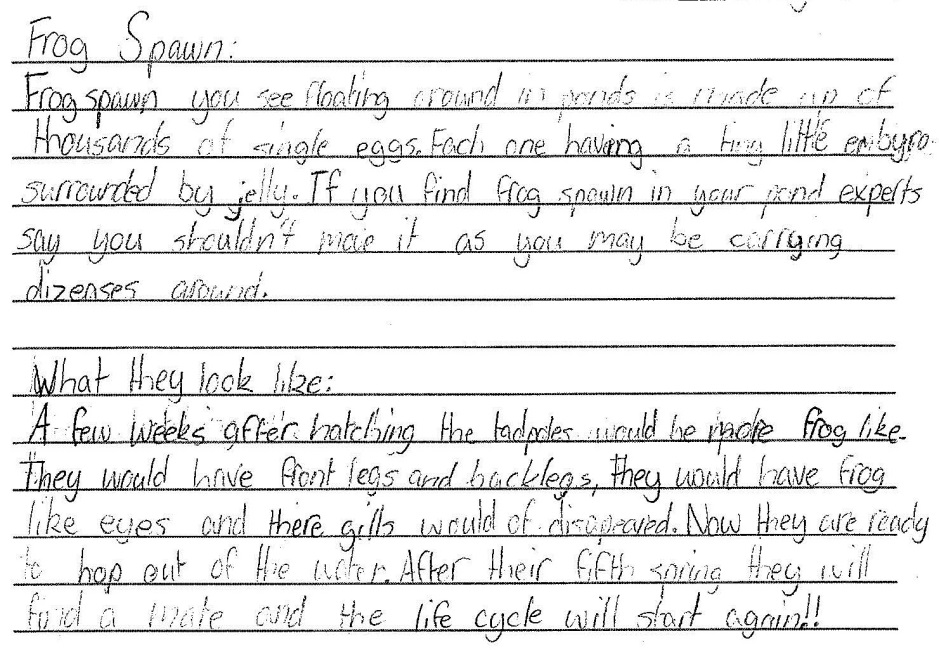 Frog Spawn:
Frog spawn you see floating around in ponds is made up of
thousands of single eggs. Each one having a tiny little embyro
surrounded by jelly. If you find frog spawn in your pond experts
say you shouldn't move it as you may be carrying
dizenses around.
What they look like:
A few weeks after hatching the tadpoles would be more frog like.
They would have front legs and backlegs, they would have frog
like eyes and there gills would of disapeared. Now they are ready
to hop out of the water. After their fifth spring they will
find a mate and the life cycle will start again!!